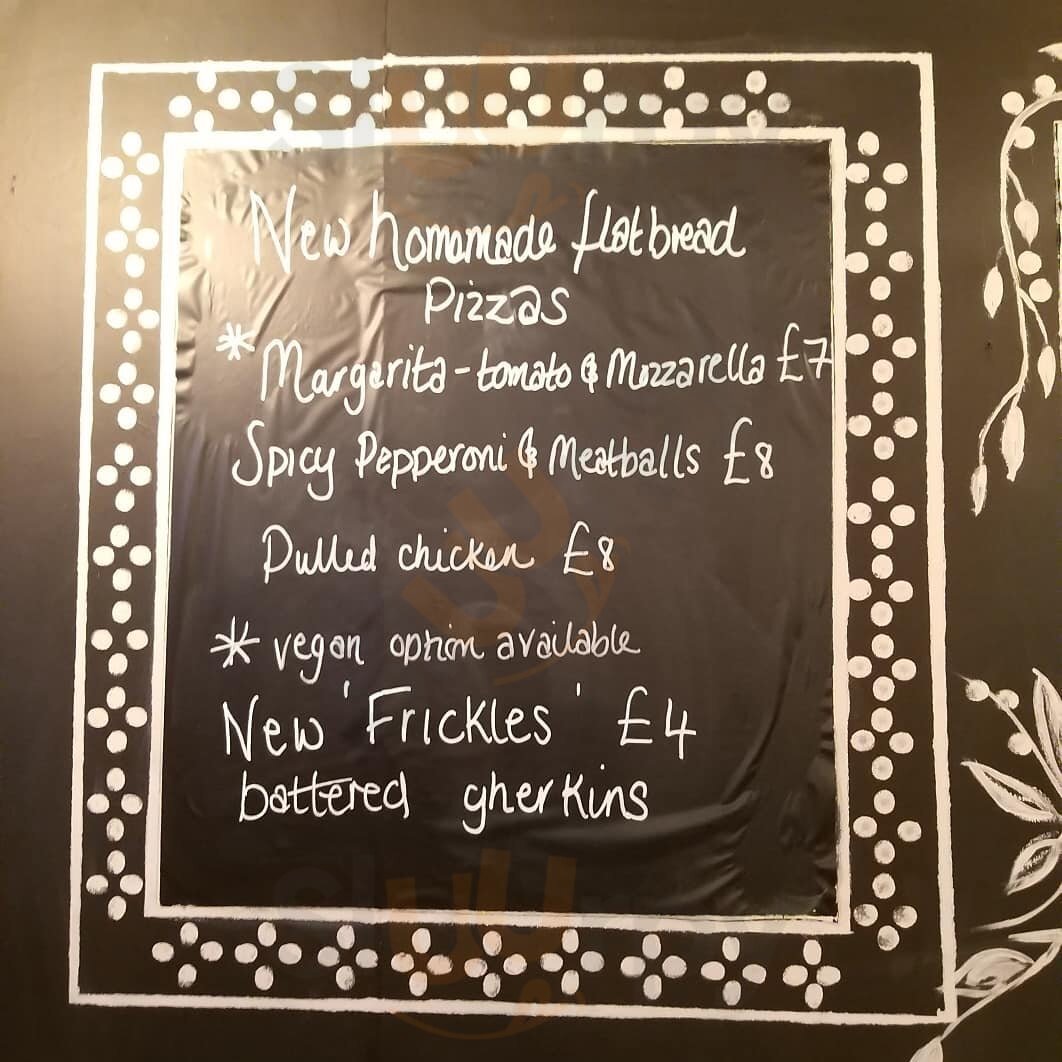 New homemade flatbread
Pizzas
* Margarita - tomato & Mozzarella £7
Spicy Pepperoni & Meatballs £8
Pulled chicken £8
* vegan option available
New 'Frickles' £4
battered gherkins